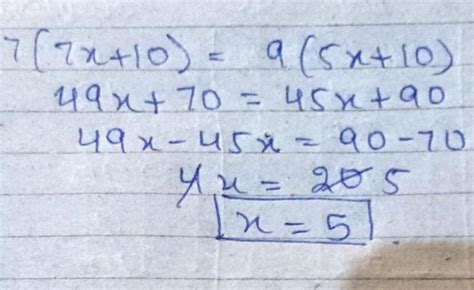 7(7x+10) = 9(5x+10)
49x+70 = 45x+90
49x-45x = 90-70
4x = 20 5
x = 5